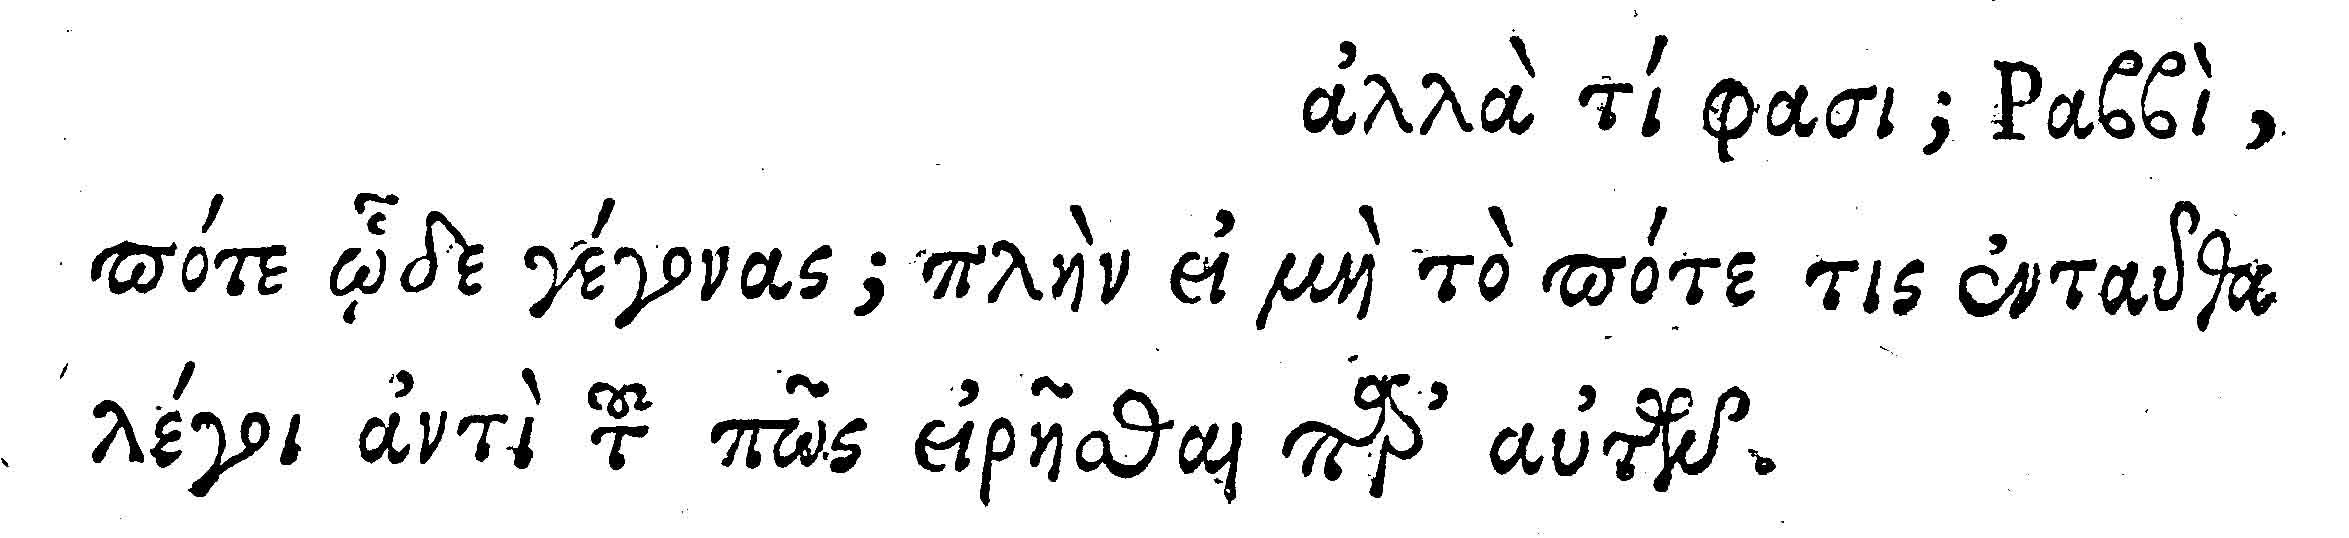 ἀλλὰ τί φασι; Ραββὶ,
πότε ᾧδε γέγονας; πλὴν εἰ μὴ τὸ πότε τις ἐνταῦθα
λέγοι ἀντὶ τοῦ πῶς εἰρῆσθαι παρ’ αὐτῶν.